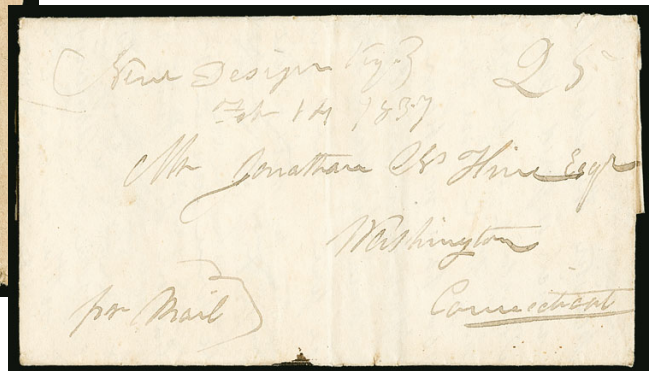 New Design Ky. 25
Feb 14 1837
Mr Jonathan Hine Esqr
Washington
Connecticut
per Mail